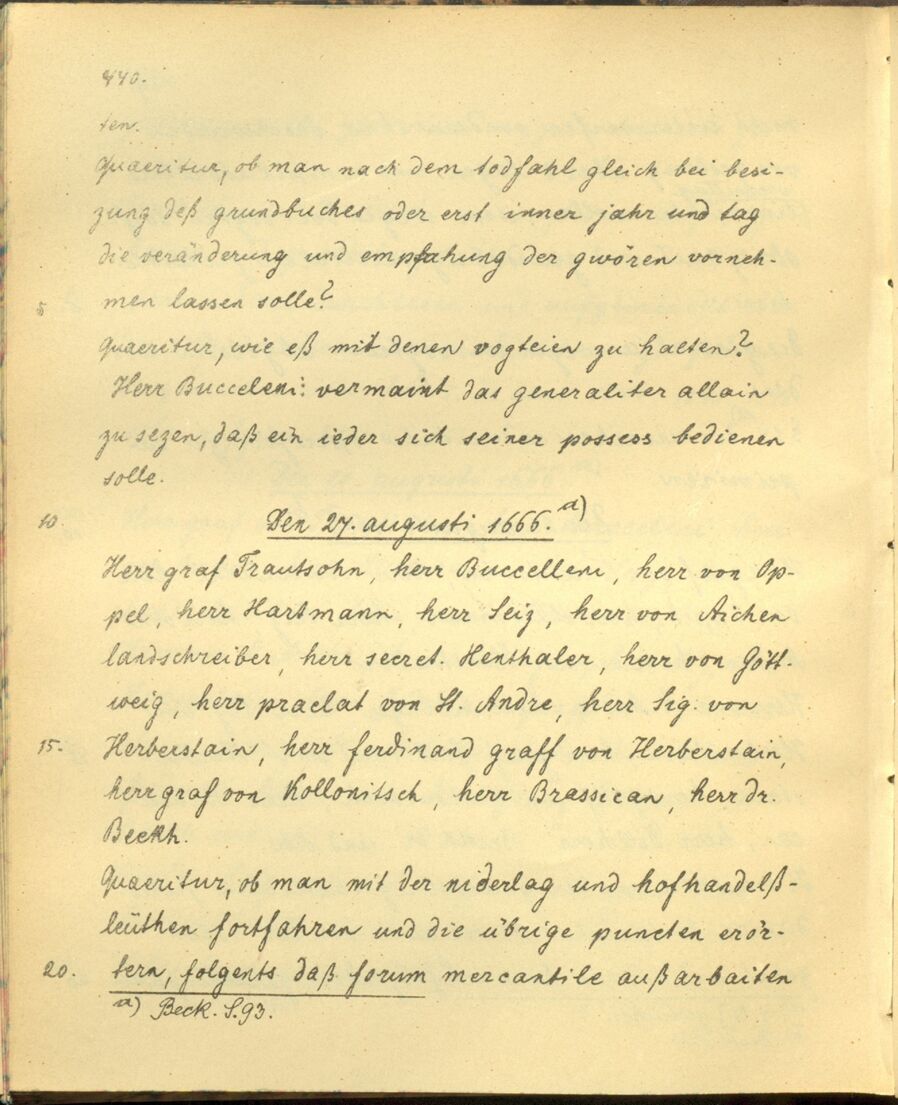 440.
ten.
Quaeritur, ob man nach dem todfahl gleich bei besi-
zung deß grundbuches oder erst inner jahr und tag
die veränderung und empfahung der gwören vorneh-
5 men lassen solle?
Quaeritur, wie eß mit denen vogteien zu halten?
Herr Bucceleni: vermaint das generaliter allain
zu sezen, daß ein ieder sich seiner possess bedienen
solle.
10. Den 27. augusti 1666. a)
Herr graf Trautsohn, herr Buccelleni, herr von Op-
pel, herr Hartmann, herr Seiz, herr von Aichen
landschreiber, herr secret. Henthaler, herr von Gött-
weig, herr praelat von St. Andre, herr Sig. von
15. Herberstain, herr ferdinand graff von Herberstain,
herr graf von Kollonitsch, herr Brassican, herr dr.
Beckh.
Quaeritur, ob man mit der niderlag und hofhandelß-
leüthen fortfahren und die übrige puncten erör-
20. tern, folgents daß forum mercantile außarbaiten
a) Beck. S. 93.